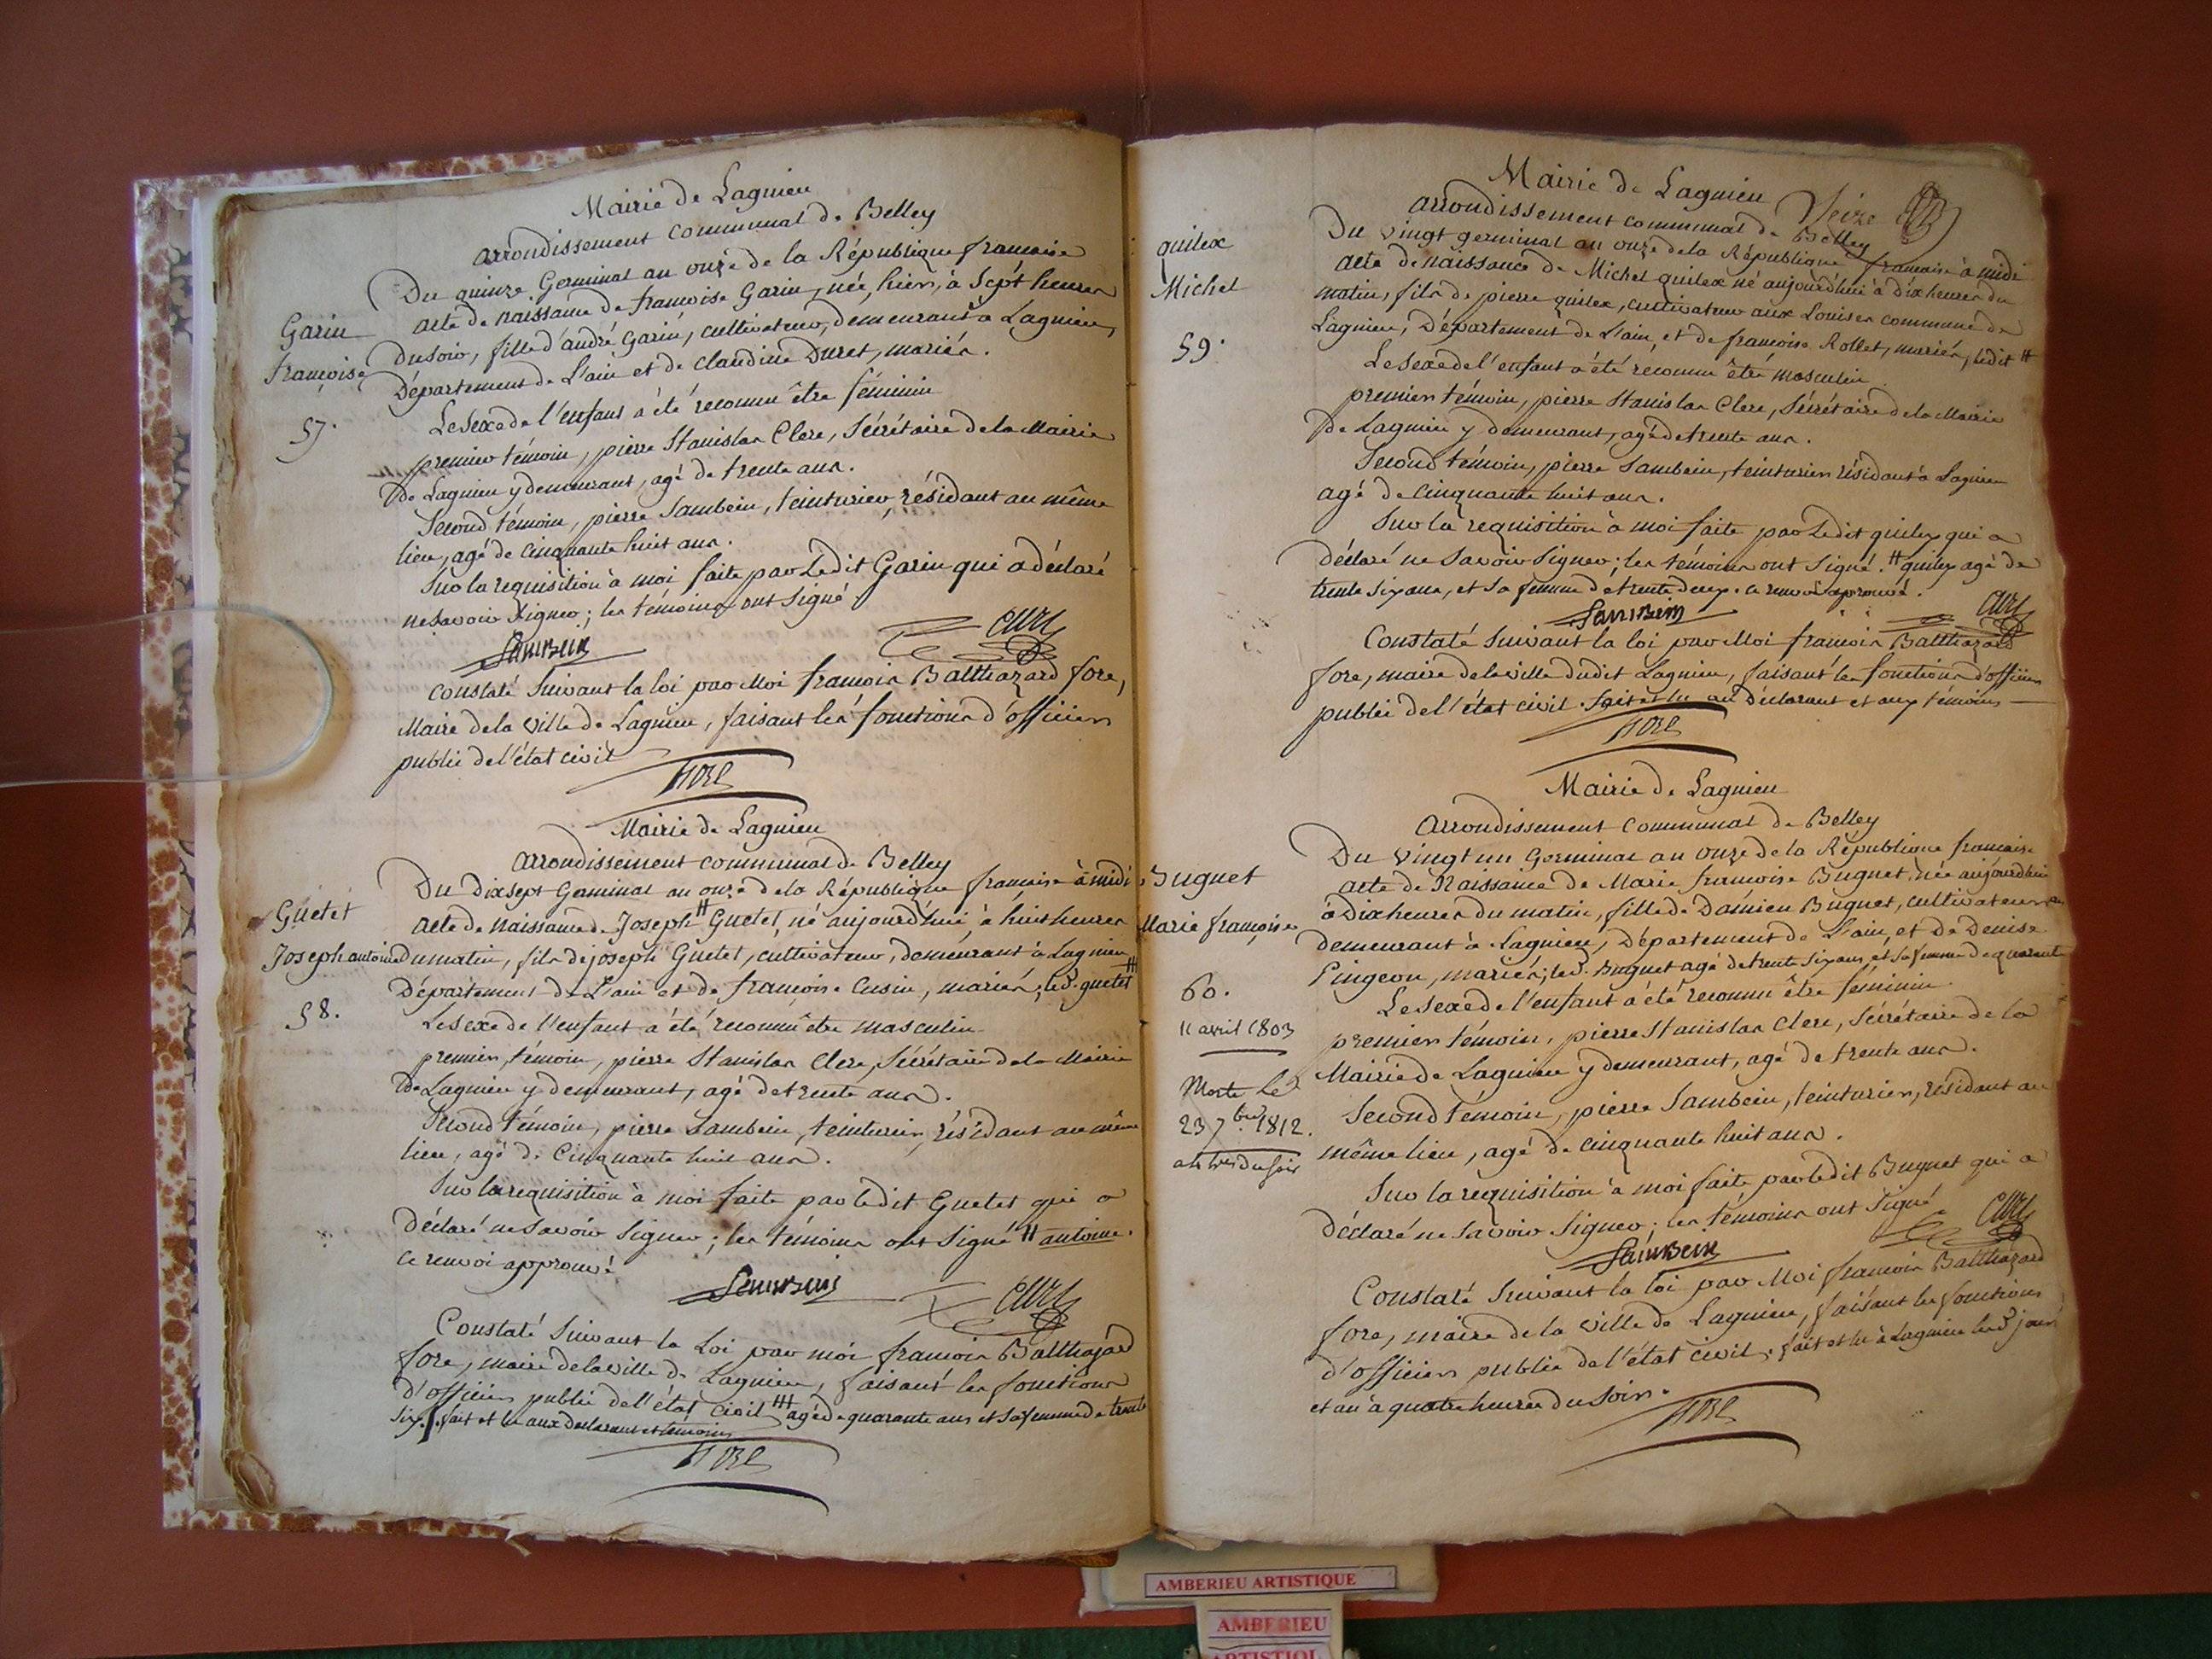 Mairie de Lagnieu
arrondissement communal de Belley
Du quinze Germinal an onze de la République francaise
acte de naissance de francoise Garin, née, hier, à Sept heures
Du soir, fille d'andré Garin, cultivateur, demeurant à Lagnieu,
Département de L'ain et de claudine Duret, mariés.
Garin
françoise
57.
Le Sexe de l'enfant à été reconnu être féminin
premier témoin, pierre Stanislas Clerc, Sécrétaire de la Mairie
de Lagnieu y demeurant, agé de trente ans.
Second témoin, pierre Sambein, teinturier, résidant au même
lieu, agé de Cinquante huit ans.
Sur la requisition à moi faite par Ledit Garin qui a déclaré
ne Savoir Signer; les témoins ont Signé
Sambein
Constaté Suivant la loi par Moi francois Balthazard fore,
Maire de la ville de Lagnieu, faisant les fonctions d'officier
public de l'état civil
fore
Mairie de Lagnieu
arrondissement communal de Belley
Du Dix sept Germinal an onze de la République francaise à midi
acte de naissance de Joseph # Guetet, né aujourd'hui, à huit heures
Du matin, fils de joseph Guetet, cultivateur, demeurant à Lagnieu
Département de L'ain et de françoise Cusin, mariés; led. guetet #
Guetet
Joseph antoine
58.
Le Sexe de l'enfant a été reconnu être masculin
premier témoin, pierre Stanislas Clerc, Sécrétaire de la Mairie
de Lagnieu y demeurant, agé de trente ans.
Second témoin, pierre Sambein, teinturier, résidant au même
lieu, agé de Cinquante huit ans.
Sur la requisition à moi faite par ledit Guetet qui a
Déclaré ne Savoir Signer; les témoins ont Signé # antoine.
ce renvoi approuvé
Sambein
Constaté Suivant la Loi par moi francois Balthazard
fore, maire de la ville de Lagnieu, faisant les fonctions
d'officier public de l'état civil # agé de quarante ans et sa femme de trente
six. fait et lu aux declarant et témoins
fore
Mairie de Lagnieu
arrondissement communal de Belley
Du vingt germinal an onze de la République francaise à midi
acte de naissance de Michel quilex né aujourd'hui à dix heures du
matin, fils de pierre quilex, cultivateur aux Louises commune de
Lagnieu, Département de L'ain, et de francoise Rollet, mariés, ledit #
quilex
Michel
59.
Le Sexe de l'enfant a été reconnu être masculin
premier témoin, pierre Stanislas Clerc, Sécrétaire de la Mairie
de Lagnieu y demeurant, agé de trente ans.
Second témoin, pierre Sambein, teinturier résidant à Lagnieu
agé de Cinquante huit ans.
Sur la requisition à moi faite par Ledit quilex qui a
déclaré ne Savoir Signer; les témoins ont Signé. # quilex agé de
trente six ans, et sa femme de trente deux. ce renvoi approuvé.
Sambein
Constaté Suivant la loi par Moi francois Balthazard
fore, maire de la ville dudit Lagnieu, faisant les fonctions d'officier
public de l'état civil. fait et lu au Déclarant et aux témoins
fore
Mairie de Lagnieu
Arrondissement Communal de Belley
Du vingt un Germinal an onze de la République francaise
acte de Naissance de Marie francoise Buguet née aujourd'hui
à Dix heures du matin, fille de Damien Buguet, cultivateur
demeurant à Lagnieu, Département de L'ain, et de Denise
Pingeon, mariés; led. Buguet agé de trente six ans, et sa femme de quarante
Buguet
Marie françoise
60.
11 avril 1803
Morte le
23 7bre 1812.
Le Sexe de l'enfant a été reconnu être féminin
premier témoin, pierre Stanislas Clerc, Sécrétaire de la
Mairie de Lagnieu y demeurant, agé de trente ans.
Second témoin, pierre Sambein, teinturier, résidant au
même lieu, agé de cinquante huit ans.
Sur la requisition à moi faite par ledit Buguet qui a
Déclaré ne Savoir Signer; les témoins ont Signé
Sambein
Constaté Suivant la loi par Moi francois Balthazard
fore, maire de la ville de Lagnieu, faisant les fonctions
d'officier public de l'état civil. fait et lu à Lagnieu led. jour
et an à quatre heures du Soir.
fore
AMBERIEU ARTISTIQUE
AMBERIEU